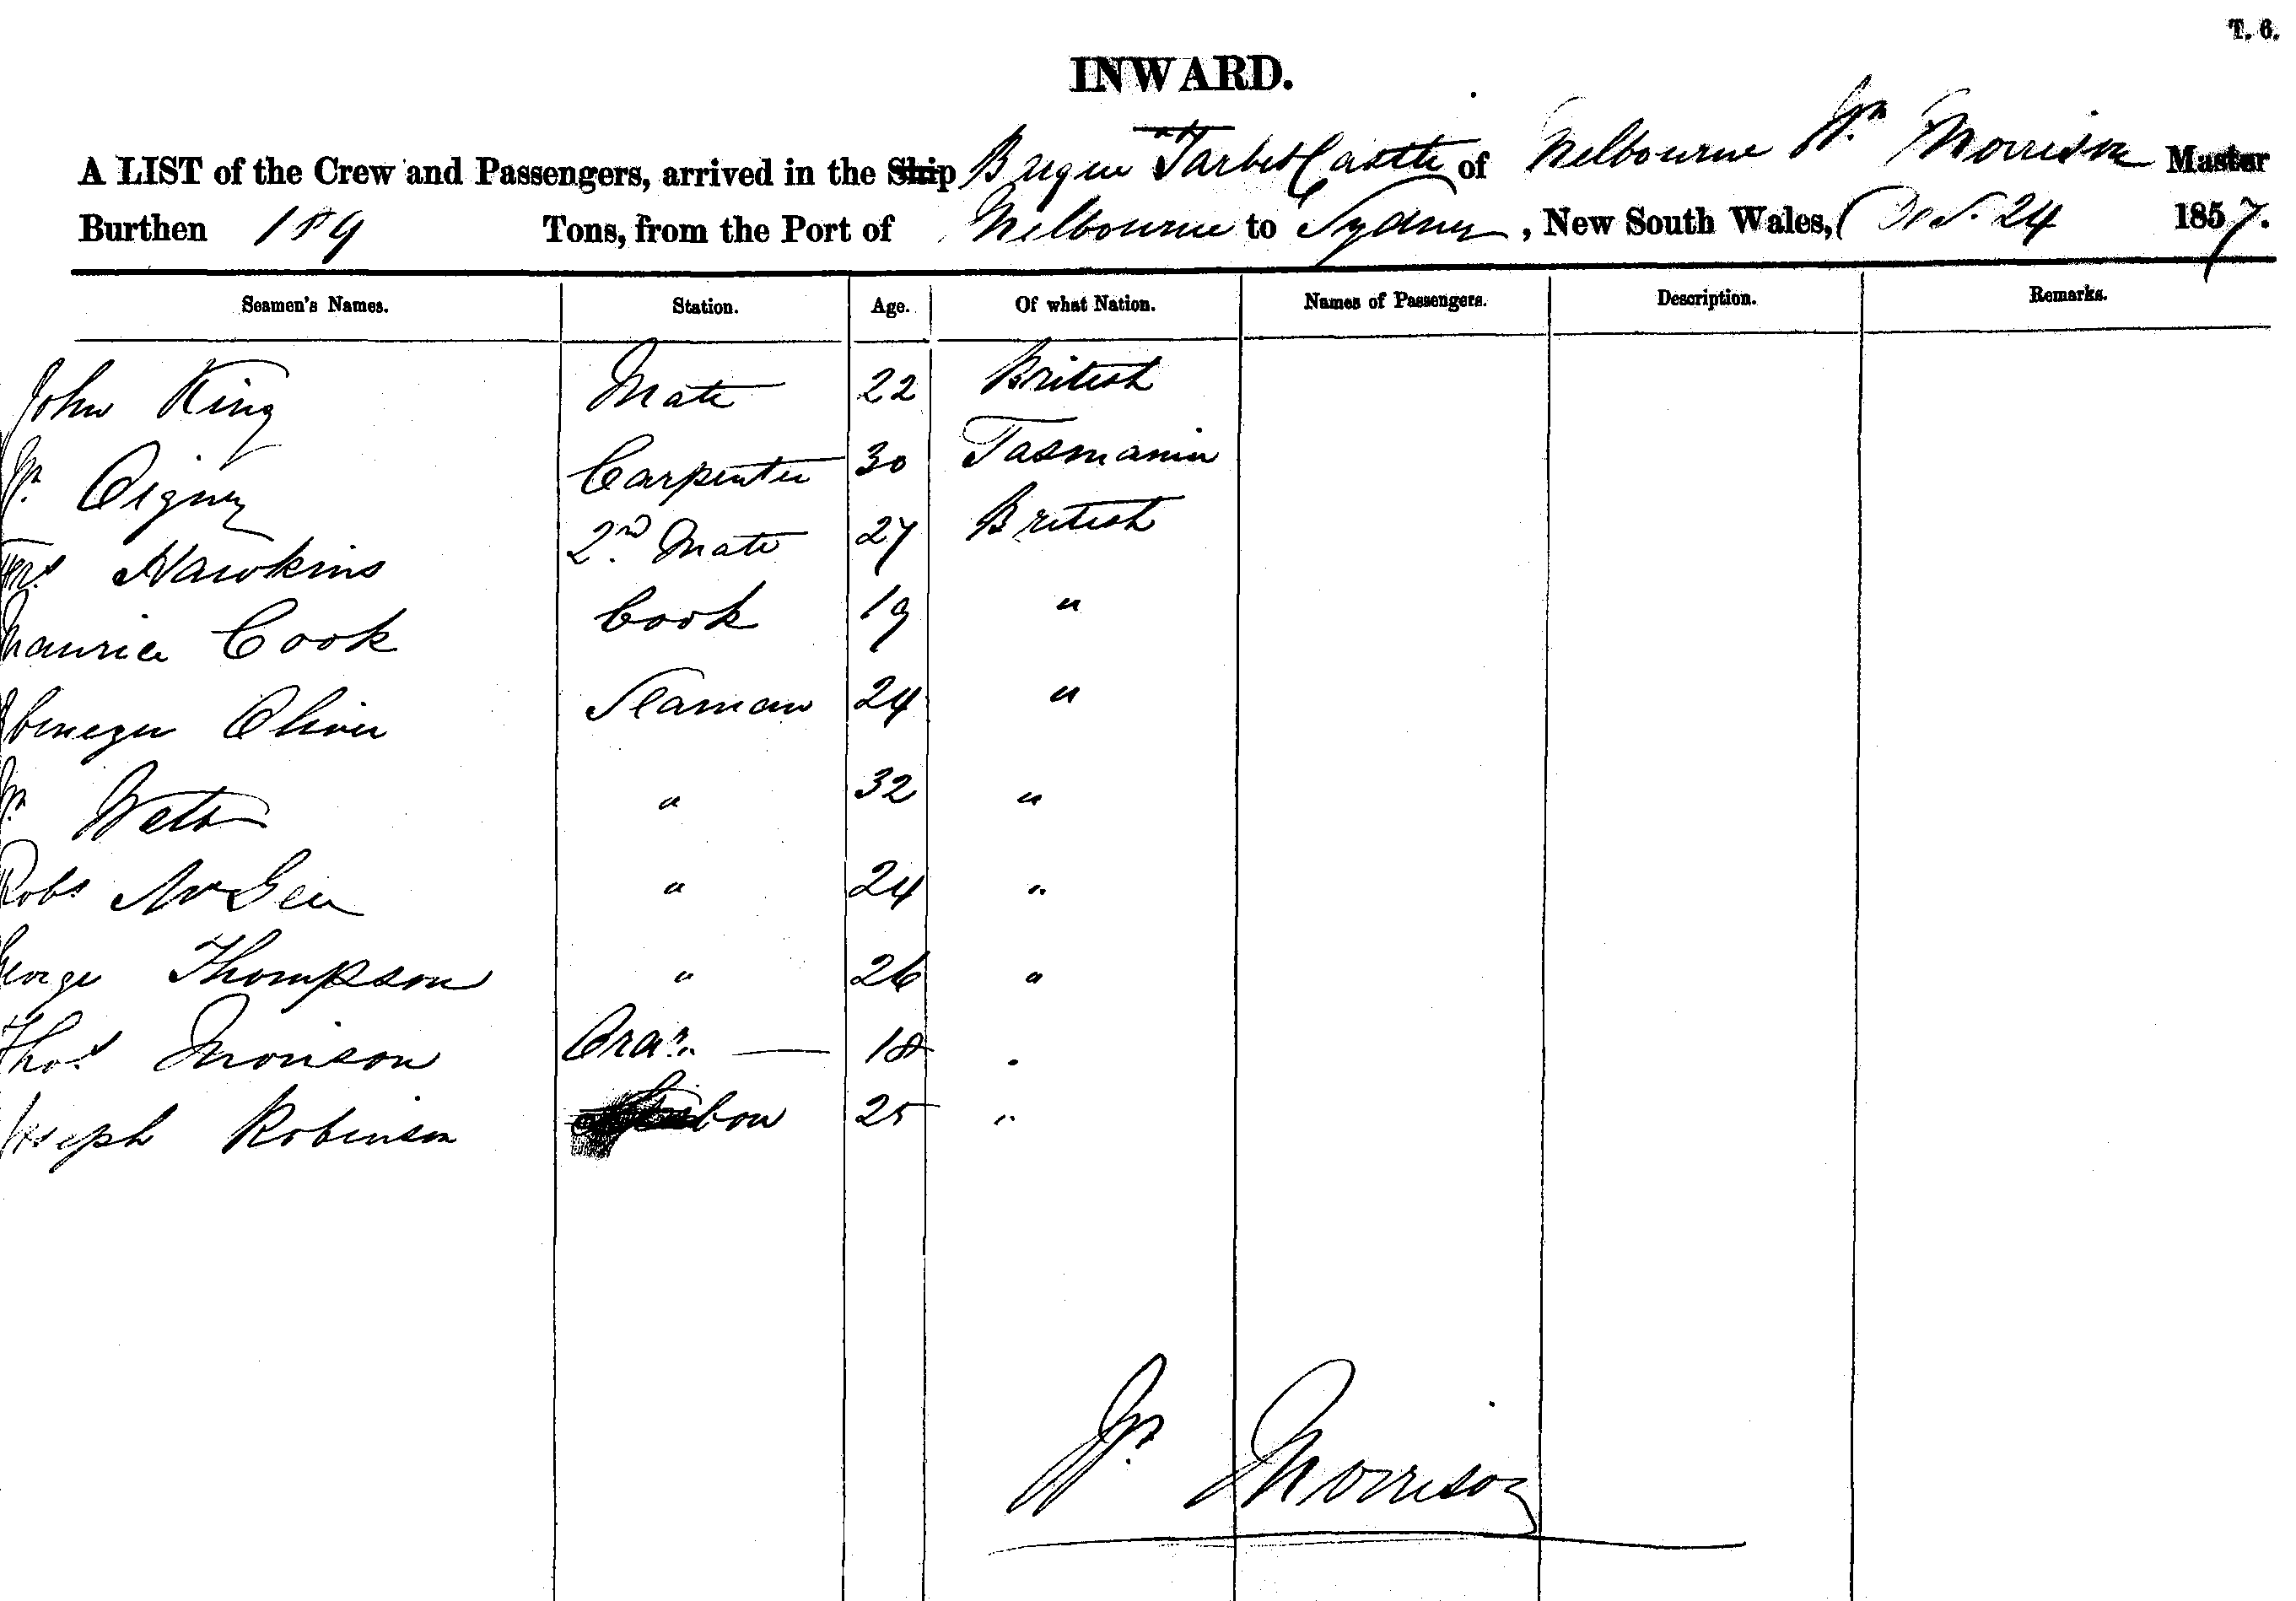 T. 6.
INWARD.
A LIST of the Crew and Passengers, arrived in the Ship Brigue Tarbet Castle of Melbourne Wm Morrison Master
Burthen 189 Tons, from the Port of Melbourne to Sydney, New South Wales, 24 1857.
Seamen's Names. Station. Age. Of what Nation. Names of Passengers. Description. Remarks.
John King Mate 22 British
Wm Carpenter 30 Tasmania
Hawkins 2nd Mate 27 British
Maurice Cook Cook 19 "
Ebenezer Oliver Seaman 24 "
Wm " 32 "
Robt McGee " 24 "
George Thompson " 26 "
Thos Morison 18 "
Joseph Robinson 25 "
Wm Morrison